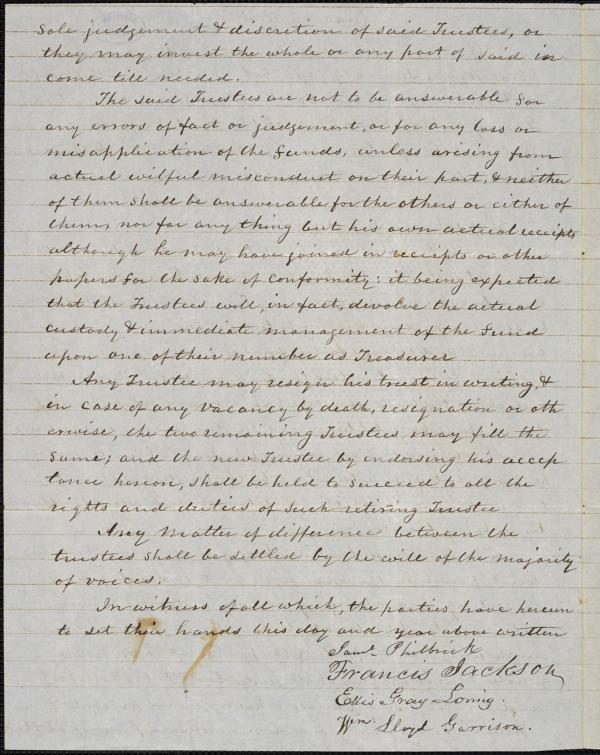 Sole judgement & discretion of said Trustees, or
they may invest the whole or any part of said in
come till needed.
The said Trustees are not to be answerable for
any errors of fact or judgement, or for any loss or
misapplication of the funds, unless arising from
actual wilful misconduct on their part, & neither
of them shall be answerable for the others or either of
them, nor for any thing but his own actual receipts
although he may have joined in receipts or other
papers for the sake of conformity: it being expected
that the Trustees will, in fact, devolve the actual
custody & immediate management of the Fund
upon one of their number as Treasurer
Any Trustee may resign his trust in writing, &
in case of any vacancy by death, resignation or oth
erwise, the two remaining Trustees may fill the
same; and the new Trustee by endorsing his accep
tance hereon, shall be held to succeed to all the
rights and duties of such retiring Trustee
Any matter of difference between the
trustees shall be settled by the will of the majority
of voices.
In witness of all which, the parties have hereun
to set their hands this day and year above written
Saml. Philbrick
Francis Jackson
Ellis Gray Loring.
Wm. Lloyd Garrison.